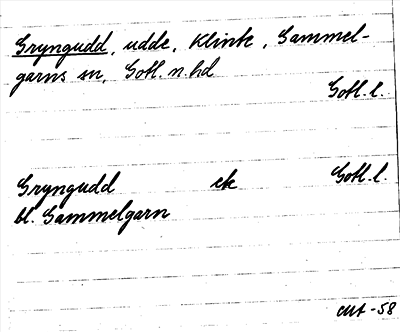 Gryngudd, udde, Klinte, Gammel-
garns sn, Gotl. n. hd
Gotl. l.
Gryngudd ek Gotl. l.
bl. Gammelgarn
-58